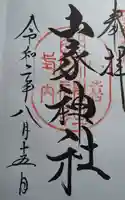 奉拝
山家神社
令和二年八月十五日